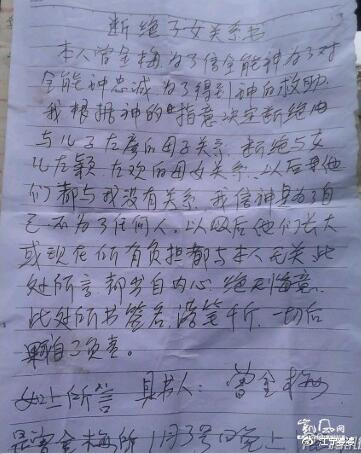 断绝子女关系书
本人曾金梅为了信全能神为了对
全能神忠诚为了得到神的救助
我根据神的指意决定断绝
与儿子左 的母子关系,断绝与女
儿左颖左欢的母女关系,以后其他
们都与我没有关系,我信神是为了自
己不为了任何人,以后他们长大
或现在所有负担都与本人无关,此
处所言都出自内心,绝不悔意,
此处所书签名,落笔千斤,一切后
果自己负责。
如上所言 具书人:曾金梅
是曾金梅所 1月3号 晚上